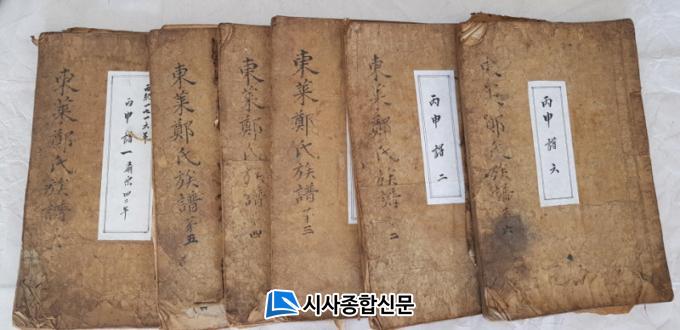 東萊鄭氏族譜
西紀一七一六年
丙申譜一 肅宗四二年
東萊鄭氏族譜 五
東萊鄭氏族譜 四
東萊鄭氏族譜 三
東萊鄭氏族譜 二
丙申譜二
東萊鄭氏族譜 六
丙申譜六
시사종합신문